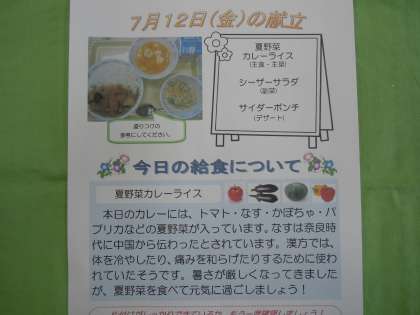 7月12日(金)の献立
夏野菜
カレーライス
(主食・主菜)
シーザーサラダ
(副菜)
サイダーポンチ
(デザート)
盛りつけの
参考にしてください。
今日の給食について
夏野菜カレーライス
本日のカレーには、トマト・なす・かぼちゃ・パ
プリカなどの夏野菜が入っています。なすは奈良時
代に中国から伝わったとされています。漢方では、
体を冷やしたり、痛みを和らげたりするために使わ
れていたそうです。暑さが厳しくなってきました
が、夏野菜を食べて元気に過ごしましょう!